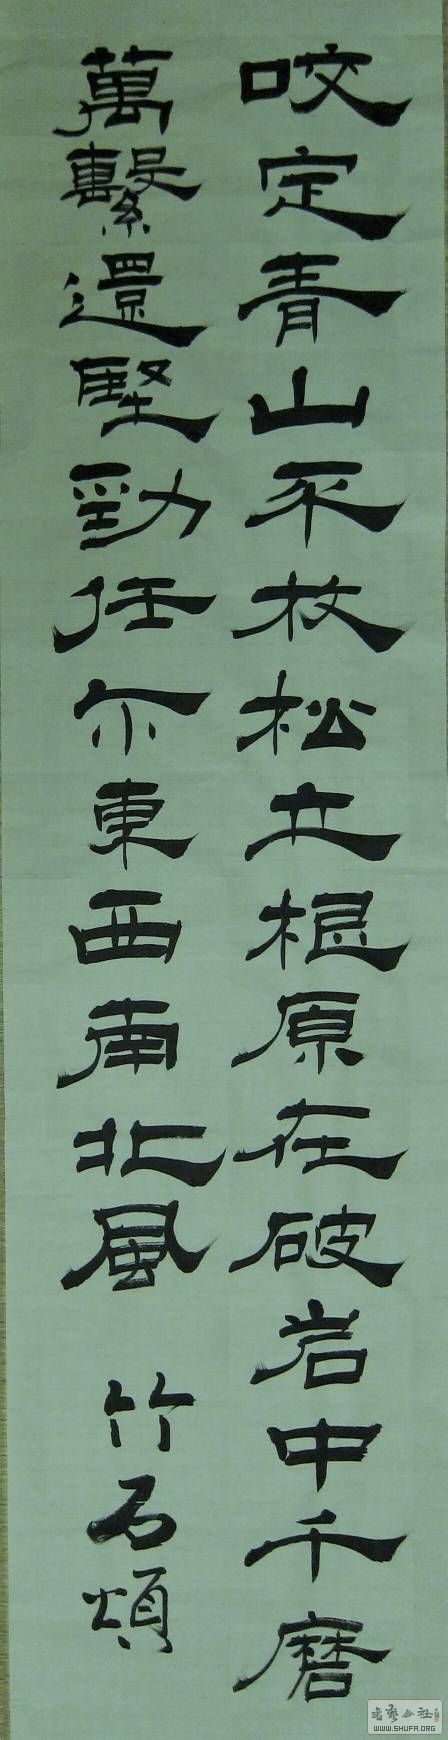 咬定青山不放松立根原在破岩中千磨
萬繫還堅勁任尔東西南北風
竹石頌
書藝公社
WWW.SHUFA.ORG